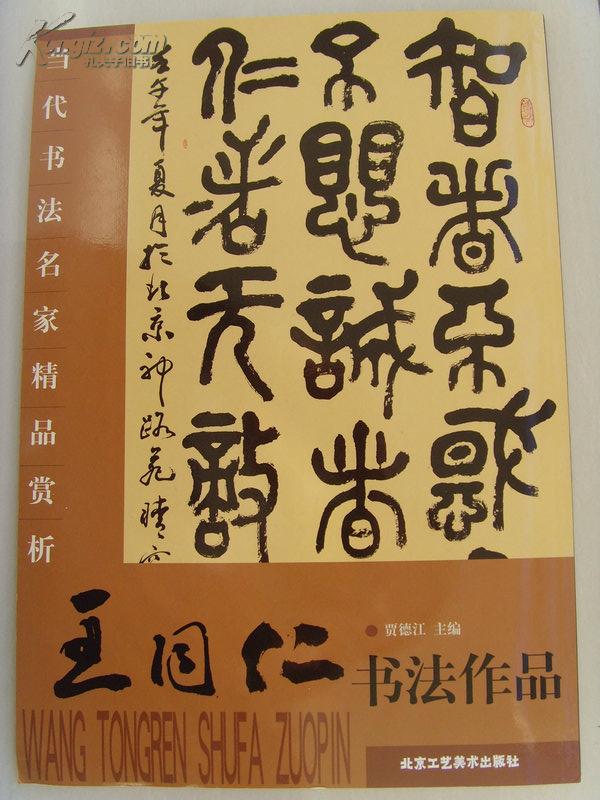 Kongfz.com
孔夫子旧书网
当代书法名家精品赏析
智者不惑
不愳誠者
仁者无敵
壬午年夏月於北京神路苑晴
王同仁
贾德江 主编
书法作品
WANG TONGREN SHUFA ZUOPIN
北京工艺美术出版社